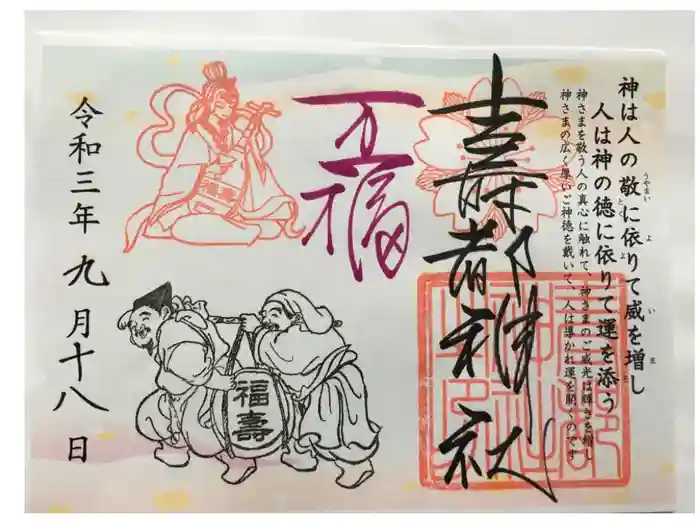 神は人の敬に依りて威を増し
人は神の徳に依りて運を添う
神さまを敬う人の真心に触れて、神さまのご威光は輝きを増し
神さまの広く厚いご神徳を戴いて、人は導かれ運を開くのです
壽都神社
福
福壽
令和三年九月十八日